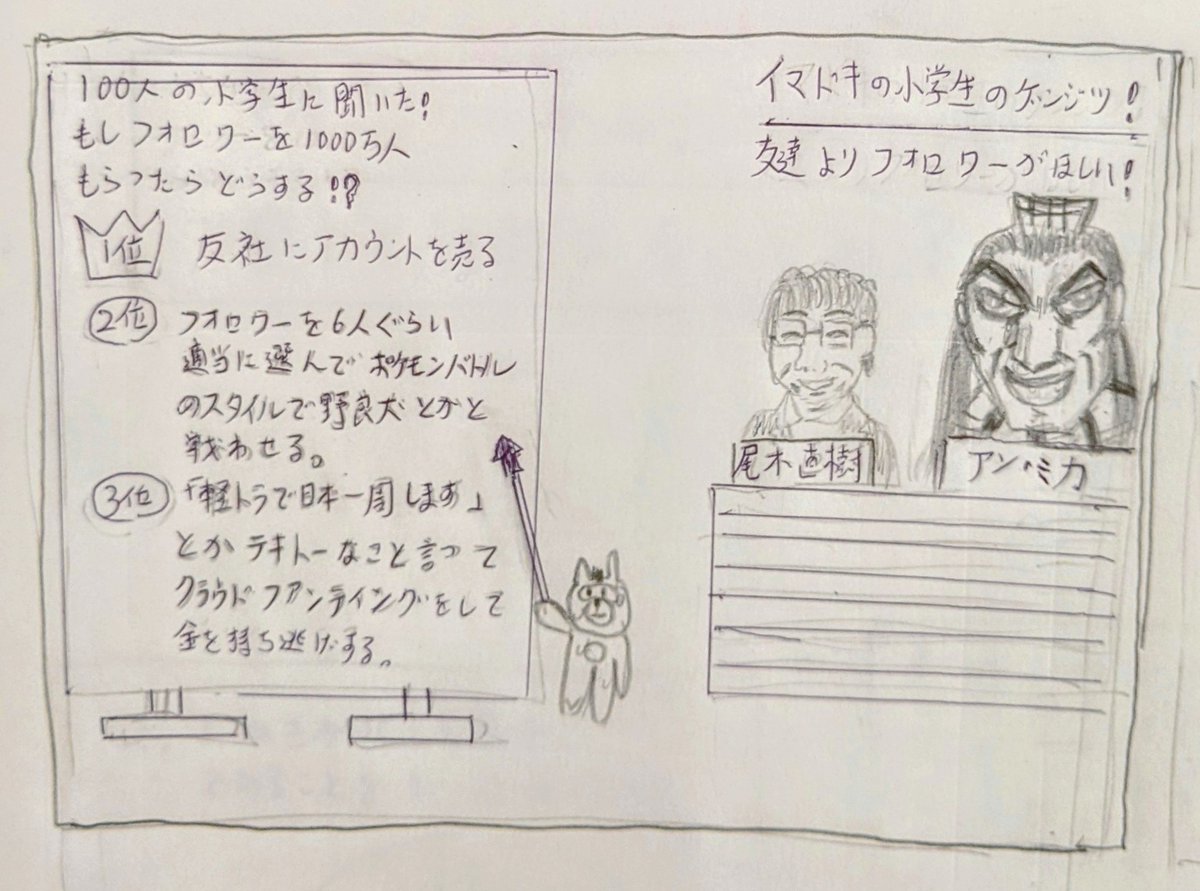 100人の小学生に聞いた!
もしフォロワーを1000万人
もらったらどうする!?
1位 反社にアカウントを売る
2位 フォロワーを6人ぐらい
適当に選んでポケモンバトル
のスタイルで野良犬とかと
戦わせる。
3位 「軽トラで日本一周します」
とかテキトーなこと言って
クラウドファンディングをして
金を持ち逃げする。
イマドキの小学生のゲンジツ!
友達よりフォロワーがほしい!
尾木直樹
アン・ミカ